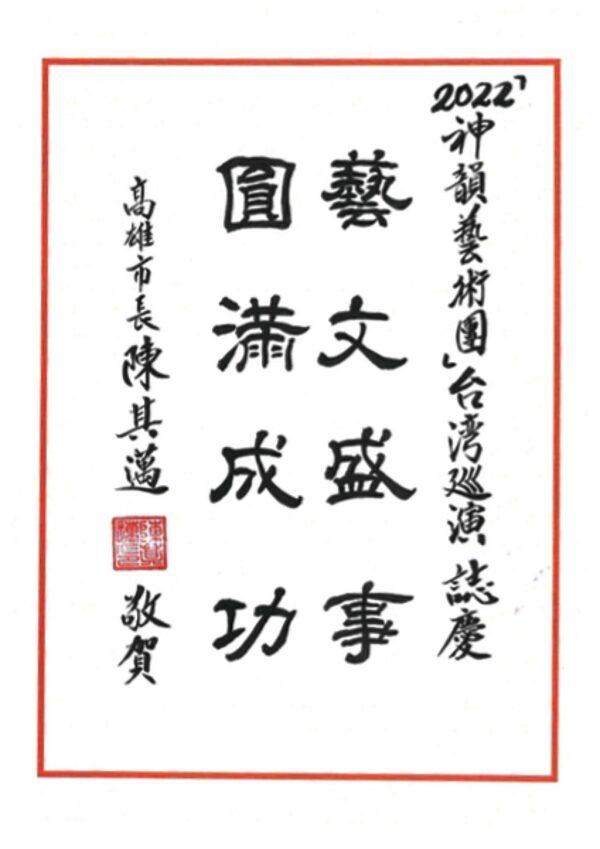 2022「神韻藝術團」台灣巡演 誌慶
藝文盛事
圓滿成功
高雄市長 陳其邁 敬賀